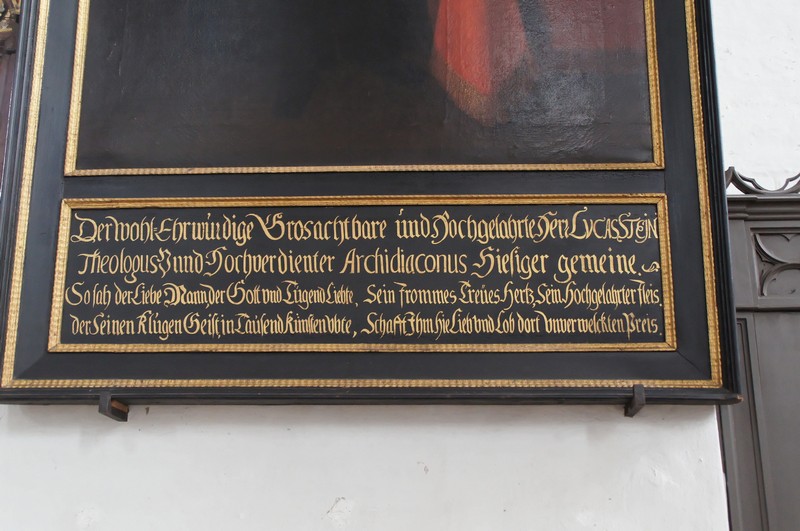 Der wohl-Ehrwürdige Grosachtbare und Hochgelahrte Herr LVCAS STEIN
Theologus und Hochverdienter Archidiaconus Hiesiger gemeine.
So sah der Liebe Mann, der Gott vnd Tugend Liebte, Sein frommes Treües Hertz, Sein Hochgelahrter fleis,
der Seinen Klugen Geist, in Tausend Künsten übte, Schafft Ihm hie Lieb vnd Lob dort Vnverwelckten Preis.